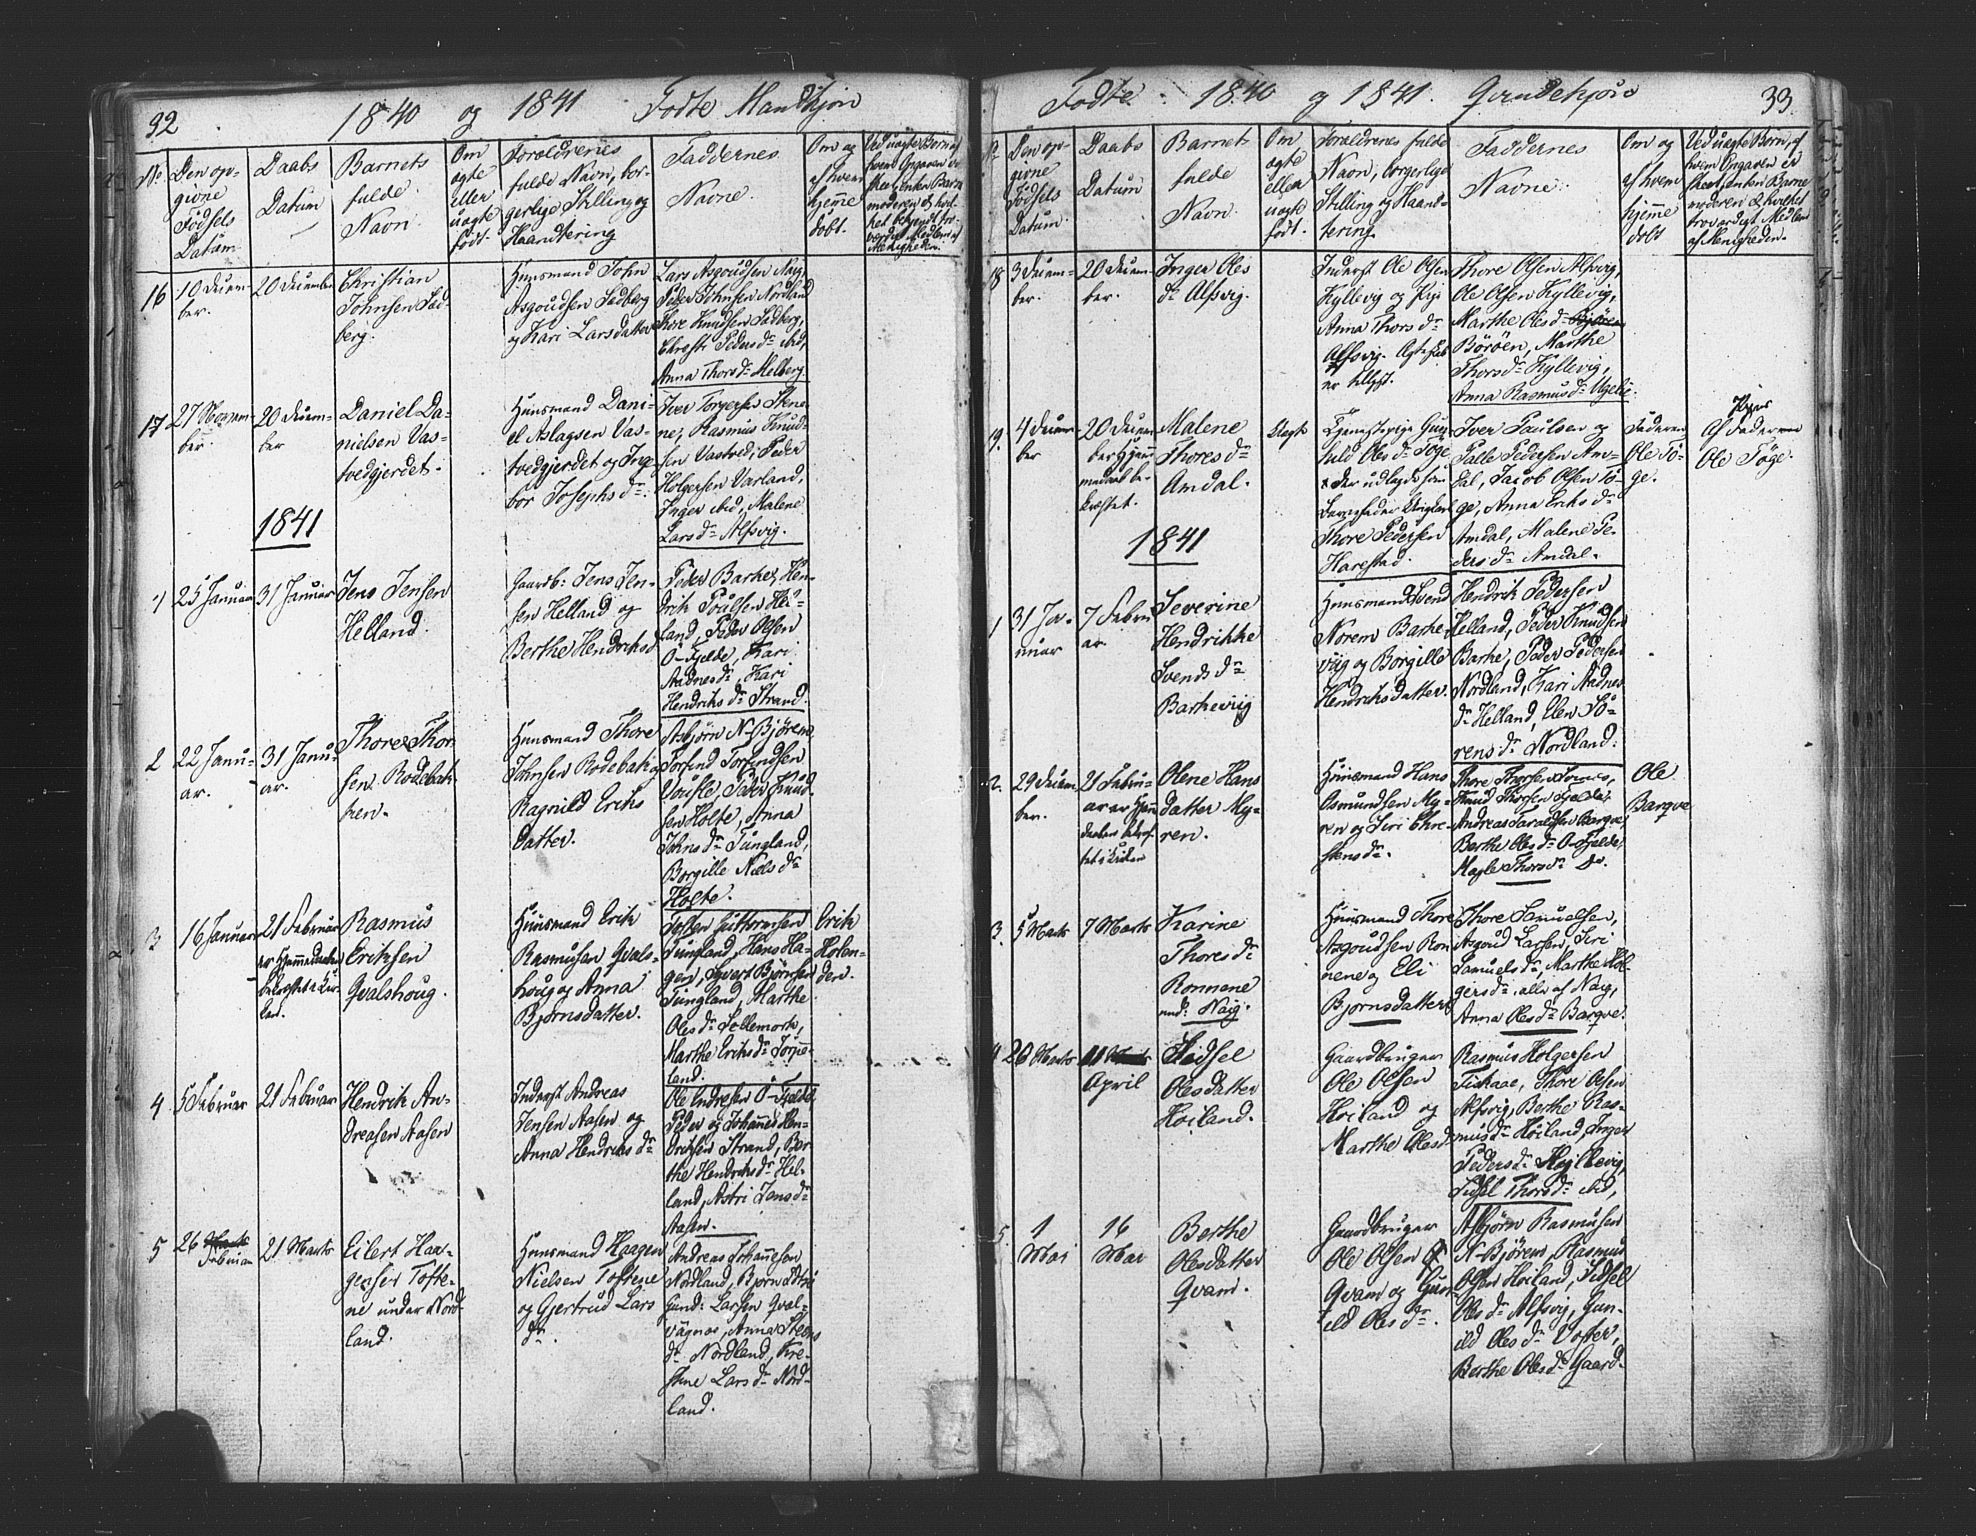 32
1840 og 1841 Fødte Mandkjøn
No.
Den op-
givne
Fødsels
Datum
Daabs
Datum
Barnets
fulde
Navn.
Om
ægte
eller
uægte
født.
Forældrenes
fulde Navn, bor-
gerlige Stilling og
Haandtering
Faddernes
Navne.
Om og
af hvem
hjemme
døbt.
16
10 Decem-
ber.
20 December
Christian
Johnsen Sad-
berg.
Huusmand John
Asgoudsen Sadberg
og Kari Larsdatter
Lars Asgoudsen Naig,
Peder Johnsen Nordland
Thore Knudsen Sadberg,
Christi Peders dr. ibid,
Anna Thors dr. Melberg.
17
27 Novem-
ber.
20 Decem-
ber
Daniel Da-
nielsen Vas-
tvedgjerdet.
Huusmand Dani-
el Aslagsen Vas-
tvedgjerdet og Inge
bor Josephs dr.
Iver Torgersen Stene
ne, Rasmus Knud-
sen Vastved, Peder
Holgersen Varland,
Inger ibid, Malene
Lars dr. Alfsvig.
1841
1
25 Januar
31 Januar
Jens Jensen
Helland.
Gaardb: Jens Jen-
sen Helland og
Berthe Hendriksd
Peder Barke, Hen-
drik Poulsen Hel-
land, Peder Olsen
Ø-Fjelde, Kari
Aadnes dr, Kari
Hendriks dr. Strand.
2
22 Janu-
ar.
31 Janu-
ar.
Thore Thor
sen Rodebak-
ken.
Huusmand Thore
Johnsen Rodebak og
Ragnild Eriks
datter.
Asbjørn N-Bjørem
Torfind Torfindsen
Peder Knud
sen Holte, Anna
Johns dr. Tungland,
Borgille Niels dr.
Holte.
3
16 Januar
21 Februar
er Hjemmedaaben
bekræftet i Kir-
ken.
Rasmus
Eriksen
Qvalshoug.
Huusmand Erik
Rasmusen Qvals-
houg og Anna
Bjørnsdatter.
Tosten Guttormsen
Tungland, Hans Ha-
gen, Syvert Bjørnsen
Tungland, Marthe
Oles dr. Sollemork,
Marthe Eriks dr. Törpe-
land.
Erik
Holen-
den.
4
5 Februar
21 Februar
Hendrik An-
dreasen Aasen
Inderst Andreas
Jensen Aasen og
Anna Hendriks dr.
Ole Endresen Ø-Fjelde
Peder og Johannes Hen-
driksen Strand, Ber
the Hendriks dr. Hel-
land, Astri Jens dr.
Aasen.
5
26
Februar
21 Marts
Eilert Haa-
gensen Tofte-
ne under Nord-
land.
Huusmand Haagen
Nielsen Toftene
og Gjertrud Lars
dr.
Andreas Johannesen
Nordland, Bjørn
Gund: Larsen Qval-
vågnes, Anna Steens
dr. Nordland, Kre-
stine Lars dr. Nord-
land.
Fødte 1840 og 1841. Qvindekjøn
33.
No
Den op-
givne
Fødsels
Datum
Daabs
Datum
Barnets
fulde
Navn.
Om
ægte
eller
uægte
født.
Forældrenes fulde
Navn, borgerlige
Stilling og Haand-
tering.
Faddernes
Navne.
Om og
af hvem
hjemme
døbt
Ved uægte Børn, af
hvem Opgaven er
skeet, enten Barne
moderen el. hvilket
troværdigt Medlem
af Menigheden.
18
3 Decem-
ber.
20 Decem
ber.
Inger Oles
dr. Alfsvig.
Inderst Ole Olsen
Hyllevig og Pige
Anna Thors dr.
Alfsvig. Ægteskab
er tillyst.
Thore Olsen Alfsvig,
Ole Olsen Hyllevig,
Marthe Oles dr. Bjøren
Børøen, Marthe
Thors dr. Hyllevig,
Anna Rasmus dr. Ugelie.
19.
4 Decem
ber
20 Decem
ber Hjem
medaab be-
kræftet.
Malene
Thores dr.
Amdal.
Uægte
Tjenestepige Gun
hild Oles dr. Töge
Thore Pedersen
Harestad.
Iver Paulsen og
Palle Pedersen Am-
dal, Jacob Olsen Tö-
ge, Anna Eriks dr.
Amdal, Malene Pe-
ders dr. Amdal.
Faderen
Ole Tö-
ge.
Af Faderen
Ole Töge.
1841
1
31 Ja-
nuar
7 Febru
ar.
Severine
Hendrikke
Svends dr.
Barkeviig
Huusmand Svend
Norem Barke
viig og Borgille
Hendriksdatter.
Hendrik Pedersen
Helland, Peder Knudsen
Barke, Peder Pedersen
Nordland, Kari Aadnes
dr. Helland, Elen Sö-
rens dr. Nordland.
2.
29 Decem
ber.
21 Febru-
ar er Hjem
Olene Hans
datter My-
ren.
Huusmand Hans
Osmundsen My-
ren og Siri Chre-
stens dr.
Thore Thorsen
Knud Thorsen Fjelde,
Andreas Taraldsen Barqve,
Berthe Oles dr. Ø-Fjelde,
Magle Thors dr. do.
Ole
Barqve
3.
5 Marts
7 Marts
Karine
Thores dr.
Ronnene
und: Naig.
Huusmand Thore
Asgoudsen Ron
nene og Eli
Bjørnsdatter
Thore Samuelsen,
Asgoud Larsen, Siri
Samuels dr, Marthe Hol-
gers dr. alle af Naig,
Anna Oles dr. Barqve.
4
26 Marts
11
April
Sidsel
Olesdatter
Hoiland.
Gaardbruger
Ole Olsen
Hoiland og
Marthe Olesd
Rasmus Holgersen
Fiskaae, Thore Olsen
Alfsvig, Berthe Ras-
mus dr. Hoiland, Inger
Peders dr. Hyllevig,
Sidsel Thors dr. ibid,
5.
1
Mai
16
Mai
Berthe
Olesdatter
Qvam.
Gaardbruger
Ole Olsen
Qvam og Gun
ild Oles dr.
Asbjørn Rasmusen
N-Bjørem, Rasmus
Olsen Hoiland, Sidsel
Oles dr. Alfsvig, Gun-
ild Oles dr. Vaster,
Berthe Oles dr. Gaard.